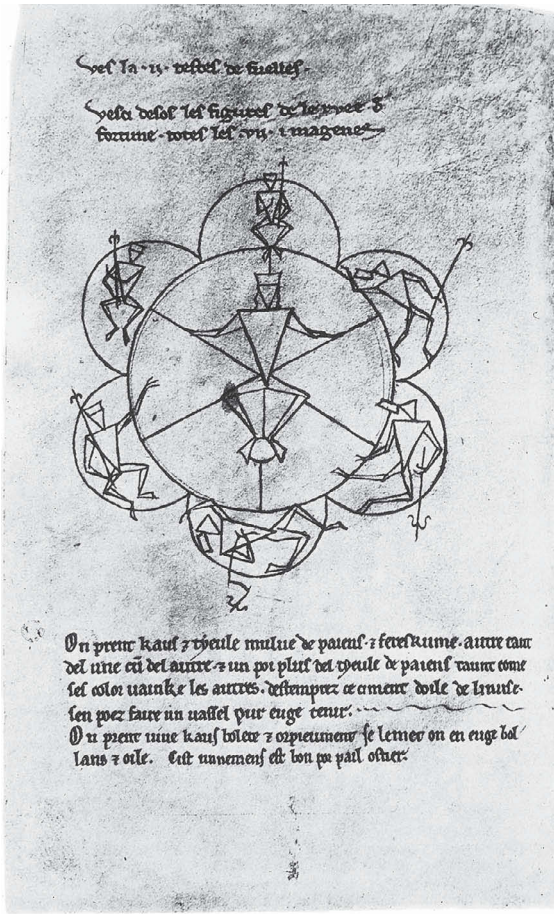 Ves la .ii. testes de fuelles.
Vesci desos les figures de le ruee d
fortune . totes les .vii. imagenes
On prent kaus ⁊ tyeule mulue de paiens . ⁊ fereskume . autre tant
del une cū del autre . ⁊ un poi plus del tyeule de paiens tant come
ses color vainke les autres . destemprez ce ciment doile de linuse .
sen poez faire un vassel pur euge tenir .
On prent vive kaus bolete ⁊ orpieument se le met on en euge bol
lans ⁊ oile . Cist unnemens est bon po pail oster .